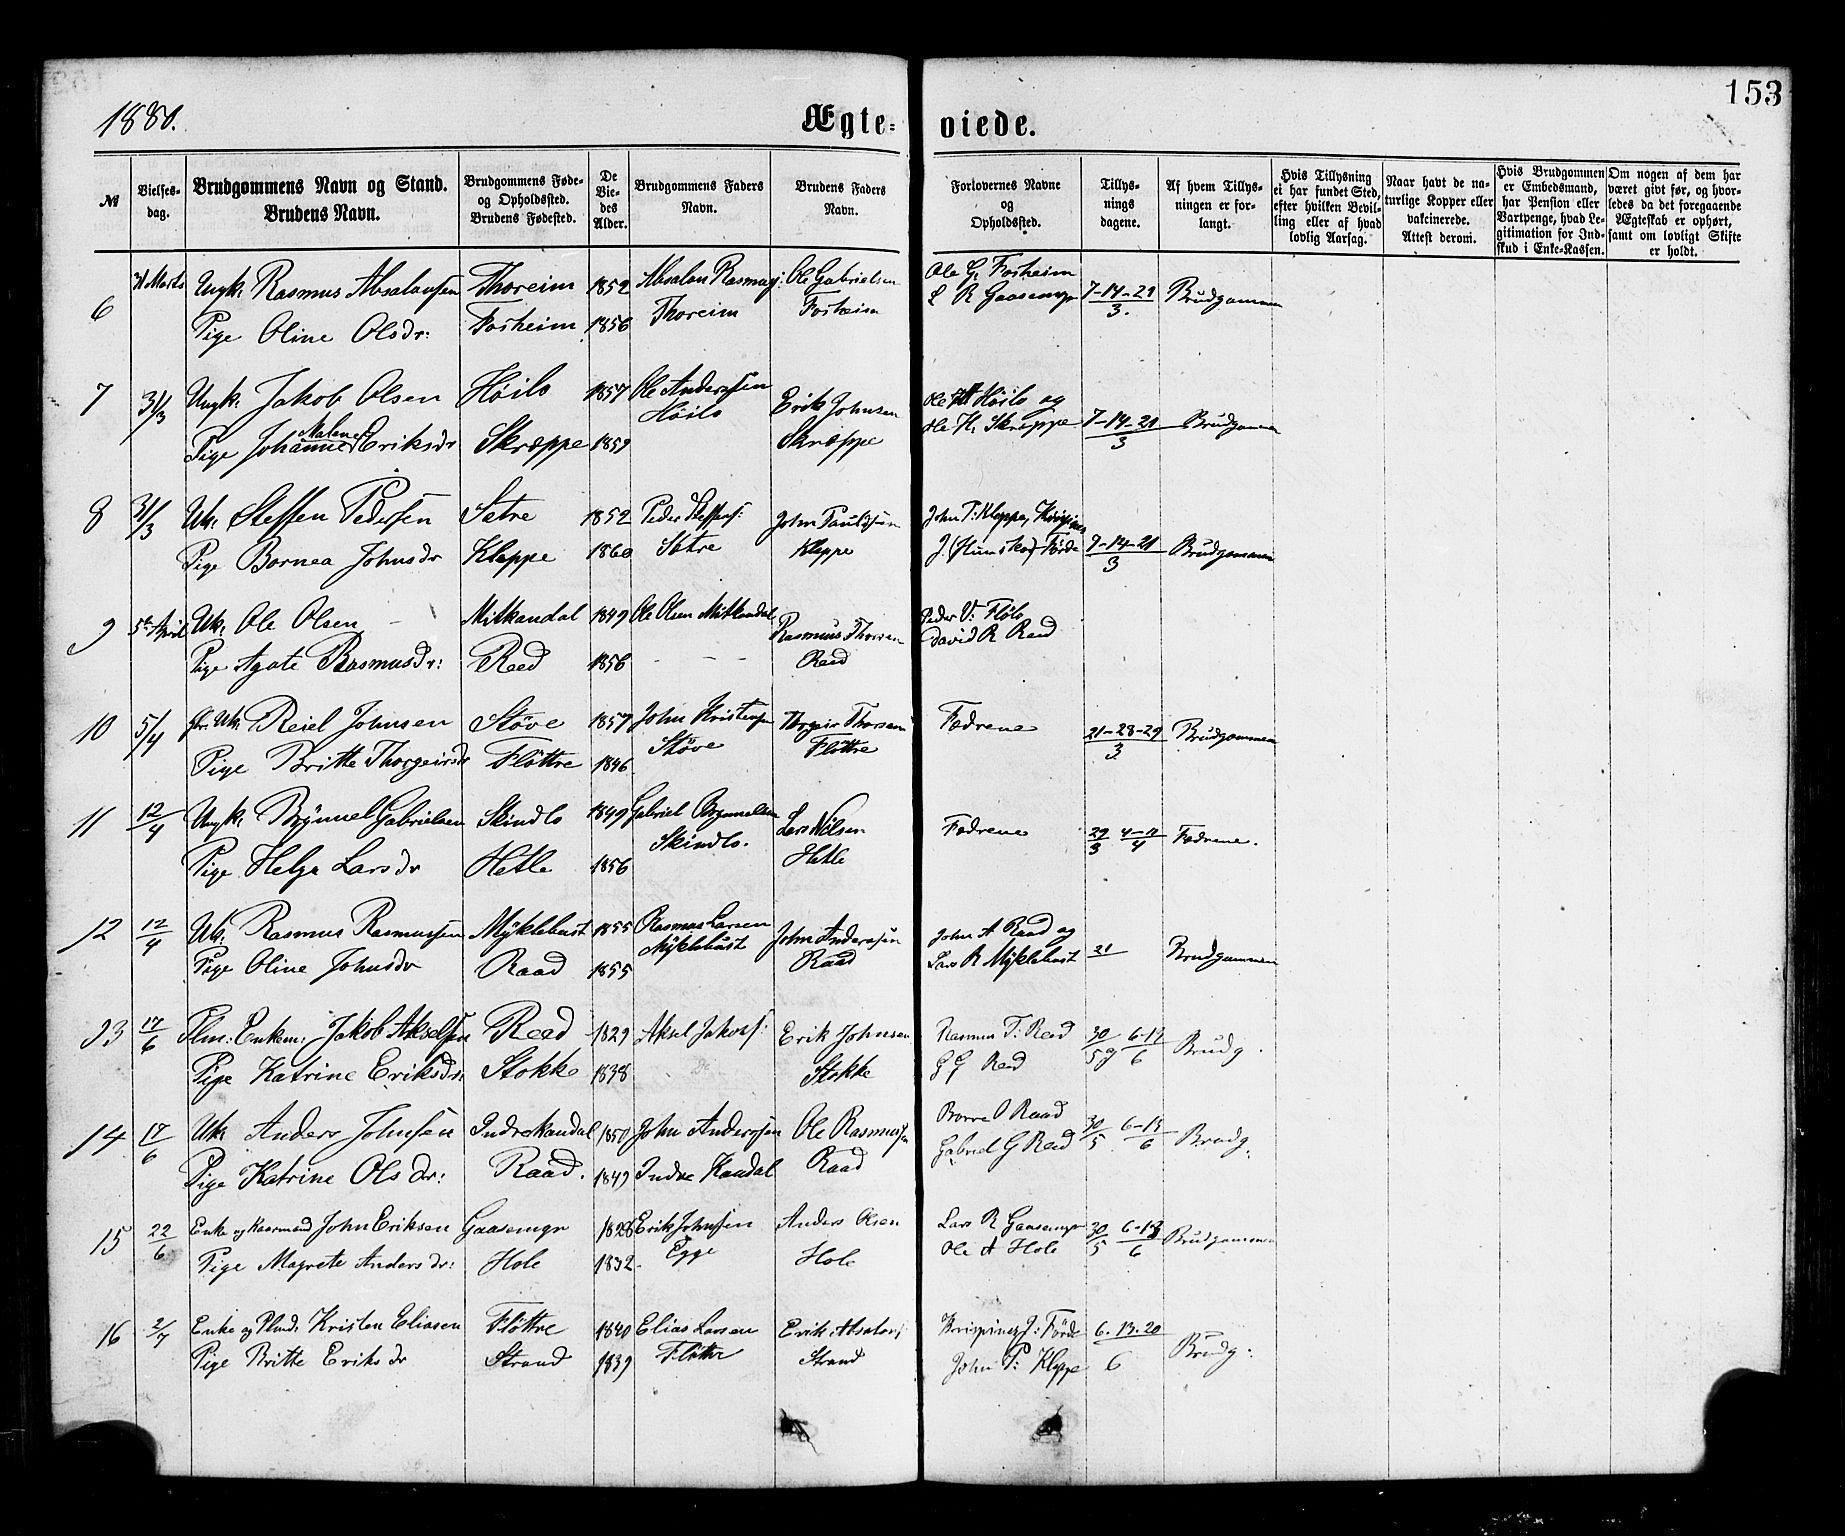 153
1880.
Ægte- viede.
№
Vielses-
dag.
Brudgommens Navn og Stand.
Brudens Navn.
Brudgommens Føde-
og Opholdssted.
Brudens Fødested.
De
Vie-
des
Alder.
Brudgommens Faders
Navn.
Brudens Faders
Navn.
Forlovernes Navne
og
Opholdssted.
Tillys-
nings
dagene.
Af hvem Tillys-
ningen er for-
langt.
Hvis Tillysning
ei har fundet Sted,
efter hvilken Bevil-
ling eller af hvad
lovlig Aarsag.
Naar havt de na-
turlige Kopper eller
vakcinerede.
Attest derom.
Hvis Brudgommen
er Embedsmand,
har Pension eller
Vartpenge, hvad Le-
gitimation for Ind-
skud i Enke-Kassen.
Om nogen af dem har
været givt før, og hvor-
ledes da det foregaaende
Ægteskab er ophørt,
samt om lovligt Skifte
er holdt.
6 31 Marts Ungk: Rasmus Absalonsen Thoreim 1852 Absalon Rasmusf: Ole Gabrielsen Ole G. Forheim 7-14-21 Brudgommen
Pige Oline Olsdr: Forheim 1856 Thoreim Forheim L R Gaasemyr 3.
7 31/3 Ungk: Jakob Olsen Höilo 1857 Ole Anderssen Erik Johnsen Ole Höilo og 7-14-21 Brudgommen
Pige Johanne Malene Eriksdr Skræppe 1859 Höilo Skræppe Ole H. Skræppe 3
8 31/3 Uk: Steffen Pedersen Sætre 1852 Peder Steffensf: John Paulssen John P: Kleppe, 7-14-21 Brudgommen
Pige Bornea Johnsdr Kleppe 1860 Sætre Kleppe J. Förde 3
9 5te April Uk: Ole Olsen Mitkandal 1849 Ole Olsen Mitkandal Rasmus Thorsen Peder V: Flölo
Pige Agate Rasmusdr: Reed 1856 - - - Reed David R Reed
10 5/4 Uk: Reiel Johnsen Stöve 1857 John Kristensen Thorgeir Thorsen Fædrene 21-28-29 Brudgommen
Pige Britte Thorgeirsdr Flöttre 1846 Stöve Flöttre 3
11 12/4 Ungk: Brynnel Gabrielsen Skindlo 1849 Gabriel Brynnelsen Lars Nilsen Fædrene 29/3 4-11/4 Fædrene.
Pige Helga Larsdr Hetle 1856 Skindlo. Hetle
12 12/4 Uk: Rasmus Rasmussen Myklebust 1855 Rasmus Larsen John Anderssen John A Raad og 21 Brudgommen
Pige Oline Johnsdr Raad 1855 Myklebust Raad Lars R Myklebust
13 17/6 Plm: Enkem: Jakob Akselsen Reed 1829 Aksel Jakobsf: Erik Johnsen Rasmus T: Reed 30/5 og 6-13/6 Brudg.
Pige Katrine Eriksdr: Stokke 1838 Stokke G G Reed
14 17/6 Uk: Anders Johnsen Indrekandal 1850 John Anderssen Ole Rasmussen Borre O Raad 30/5 6-13/6 Brudg.
Pige Katrine Olsdr: Raad. 1849 Indre Kandal Raad Gabriel G Reed
15 22/6 Enke og Kaarmand John Eriksen Gaasemyr 1828 Erik Johnsen Anders Olsen Lars R Gaasemyr 30/5 6-13/6 Brudgommen
Pige Magrete Andersdr: Hole 1832 Egge Hole Ole A Hole
16 2/7 Enke og Plmd: Kristen Eliasen Flöttre 1840 Elias Larsen Erik Absalonf: Krispinus J: Förde 6. 13. 20 Brudg:
Pige Britte Eriksdr Strand 1839 Flöttre Strand John P: Kleppe 6